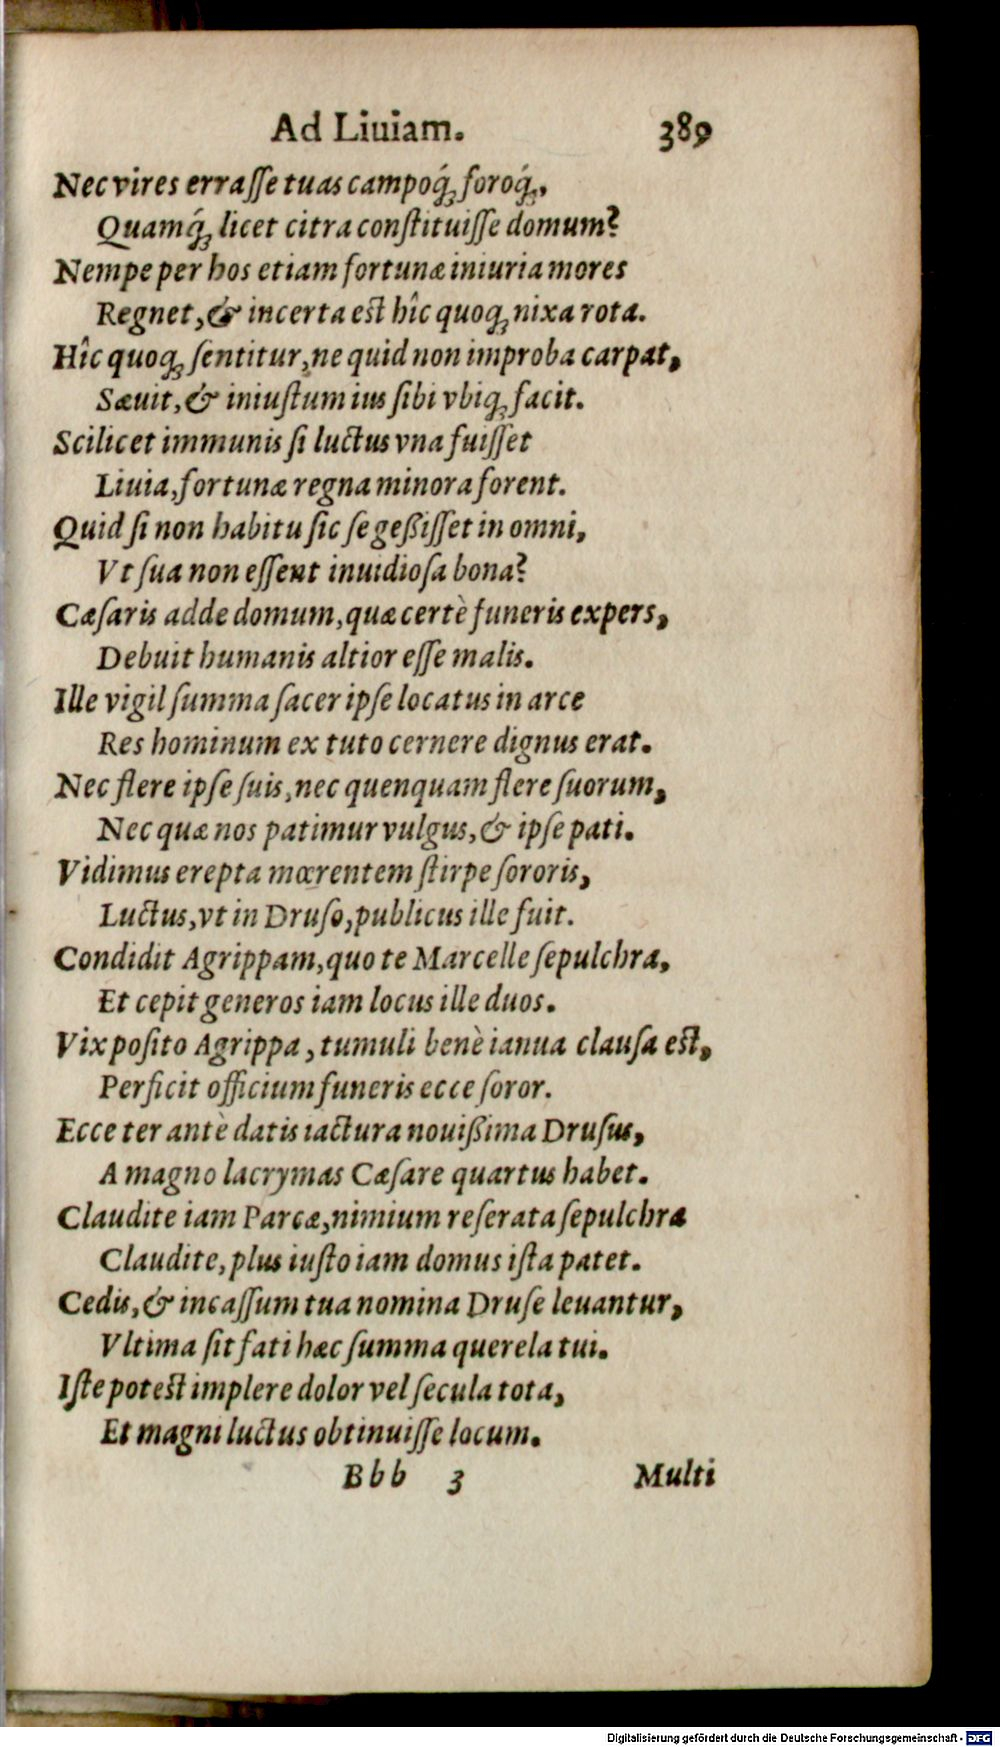 Ad Liuiam. 389
Nec vires erraſſe tuas campoq́; foroq́;,
Quamq́; licet citra conſtituiſſe domum?
Nempe per hos etiam fortunæ iniuria mores
Regnet, & incerta est hîc quoq; nixa rota.
Hîc quoq; ſentitur, ne quid non improba carpat,
Sæuit, & iniuſtum ius ſibi vbiq; facit.
Scilicet immunis ſi luctus vna fuiſſet
Liuia, fortunæ regna minora forent.
Quid ſi non habitu ſic ſe geßiſſet in omni,
Vt ſua non eſſent inuidioſa bona?
Cæſaris adde domum, quæ certè funeris expers,
Debuit humanis altior eſſe malis.
Ille vigil ſumma ſacer ipſe locatus in arce
Res hominum ex tuto cernere dignus erat.
Nec flere ipſe ſuis, nec quenquam flere ſuorum,
Nec quæ nos patimur vulgus, & ipſe pati.
Vidimus erepta mœrentem ſtirpe ſororis,
Luctus, vt in Druſo, publicus ille fuit.
Condidit Agrippam, quo te Marcelle ſepulchra,
Et cepit generos iam locus ille duos.
Vix poſito Agrippa, tumuli benè ianua clauſa est,
Perficit officium funeris ecce ſoror.
Ecce ter antè datis iactura nouißima Druſus,
A magno lacrymas Cæſare quartus habet.
Claudite iam Parcæ, nimium reſerata ſepulchra
Claudite, plus iuſto iam domus iſta patet.
Cedis, & incaſſum tua nomina Druſe leuantur,
Vltima ſit fati hæc ſumma querela tui.
Iſte potest implere dolor vel ſecula tota,
Et magni luctus obtinuiſſe locum.
Bbb 3 Multi
Digitalisierung gefördert durch die Deutsche Forschungsgemeinschaft - DFG